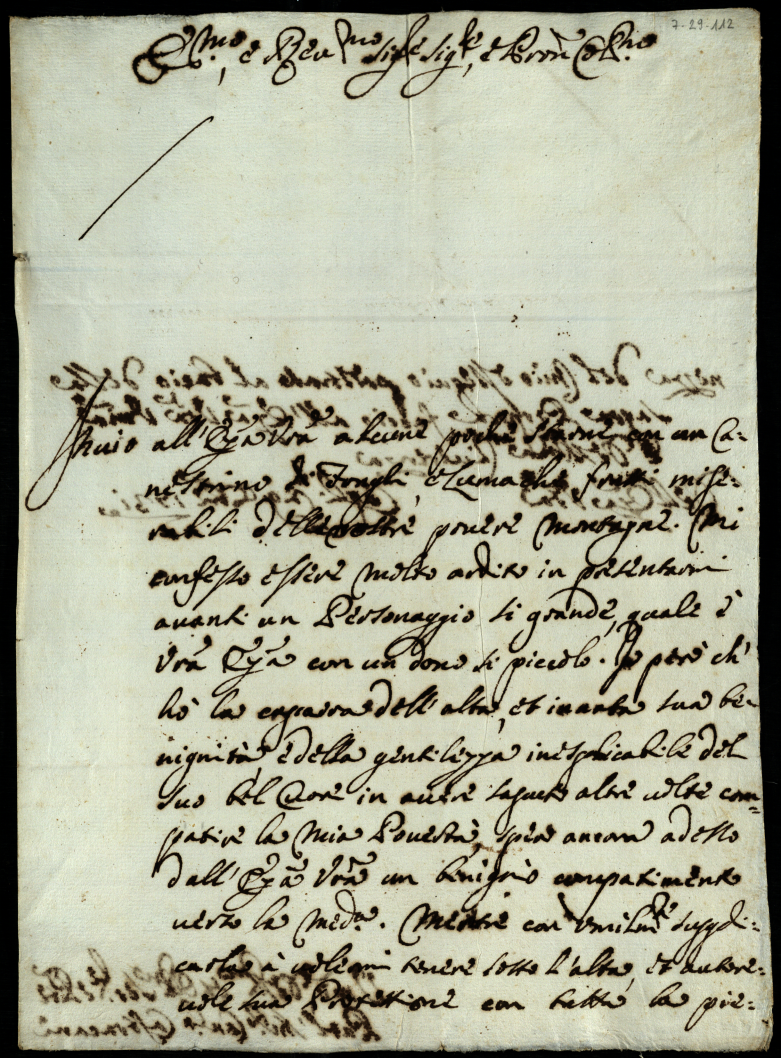 7-29-112
E.mo, e Reu.mo Sig.re Sig.re, e Pron Col.mo
Inuio all'Eza Vra alcune poche starne con un Ca=
nestrino di Fonghi, e Lumache frutti mise=
rabili delle nostre pouere Montagne. Mi
confesso essere molto ardito in presentarmi
auanti un Personaggio si grande, quale è
Vra Eza con un dono si piccolo. Io però ch'
hò la caparra dell'alta, et innata sua be=
nignità e della gentilezza inesplicabile del
suo bel Cuore in auere sapute altre uolte com=
patire la Mia Pouertà, spero ancora adesso
dall'Eza Vra un benigno compatimento
uerso la med.a. Mentre con umilm.te suppli=
carla à uolermi tenere sotto l'alta, et autore=
uole sua Protettione con tutta la pie=